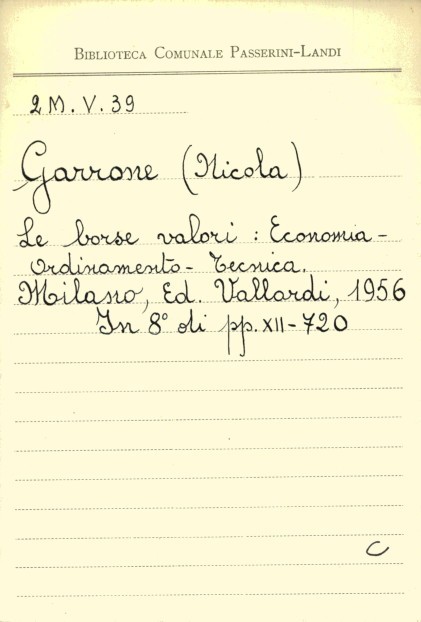 BIBLIOTECA COMUNALE PASSERINI-LANDI
2 M. V. 39
Garrone (Nicola)
Le borse valori : Economia -
Ordinamento - Tecnica.
Milano, Ed. Vallardi, 1956
In 8° di pp. XII - 720
C